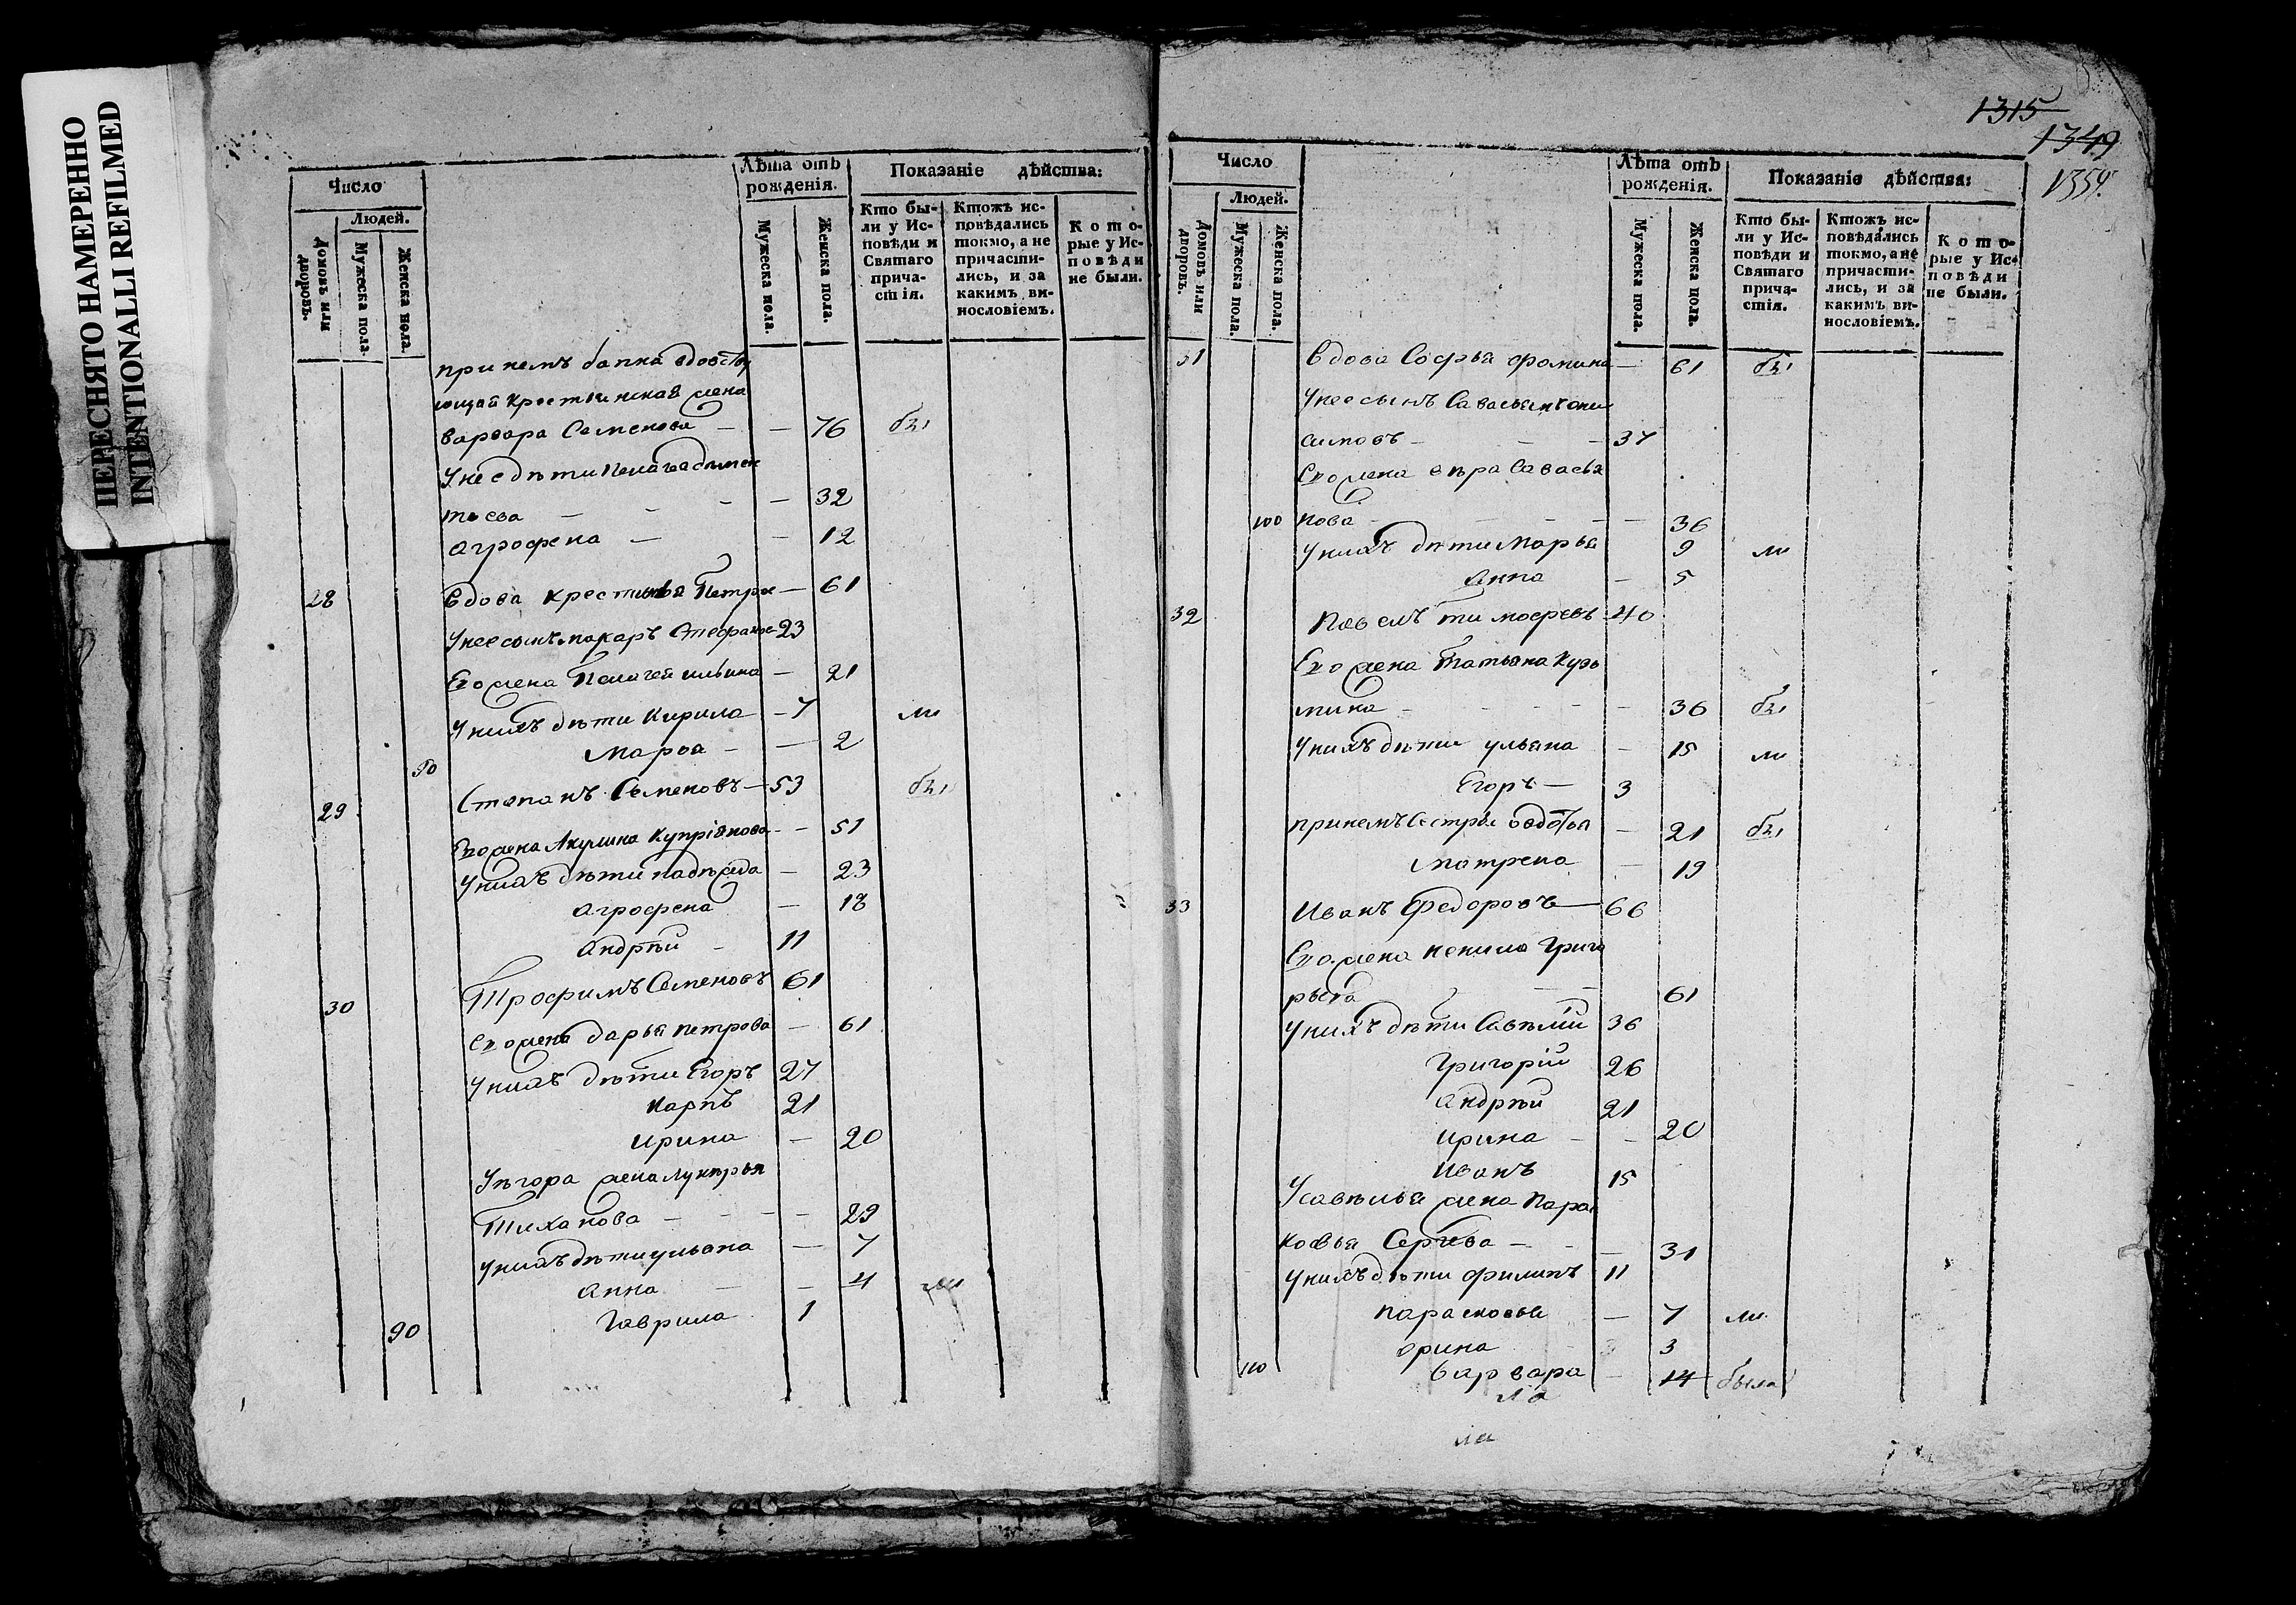 ПЕРЕСНЯТО НАМЕРЕННО
INTENTIONALLI REFILMED
Число
Людей.
Домовъ или дворовъ.
Мужеска пола.
Женска пола.
Лѣта отъ рожденія.
Мужеска пола.
Женска пола.
Показаніе дѣйства:
Кто бы-
ли у Ис-
повѣди и
Святаго
прича-
стія.
Ктожъ ис-
повѣдались
токмо, а не
причасти-
лись, и за
какимъ ви-
нословіемъ.
Кото-
рые у Ис-
повѣди
не были.
при немъ бапка вдовству
ющая крестьянская жена
варвара Семенова — — 76 бы
У нее дѣти Пелагея
32
Агрофена — — 12
28 Вдова крестинья Петро — 61
У нее сынъ макаръ Стефанов 23
Его жена Пелагея ильина — 21
У нихъ дѣти Кирила — 7 ли
Марѳа — — 2
29 Степанъ Семеновъ — 53 бы
Его жена Акулина Купріянова — 51
У нихъ дѣти надѣжда — 23
Агрофена — 18
Андрѣй — 11
30 Трофимъ Семеновъ 61
Его жена дарья петрова — 61
У нихъ дѣти Егоръ 27
Карпъ 21
Ирина — 20
У Егора жена лукерья
Тиханова — — — 29
У нихъ дѣти ульяна — 7
Анна — — 4 ли
90 Гаврила 1
1315
1349
1354
Число
Людей.
Домовъ или дворовъ.
Мужеска пола.
Женска пола.
Лѣта отъ рожденія.
Мужеска пола.
Женска пола.
Показаніе дѣйства:
Кто бы-
ли у Ис-
повѣди и
Святаго
прича-
стія.
Ктожъ ис-
повѣдались
токмо, а не
причасти-
лись, и за
какимъ ви-
нословіемъ.
Кото-
рые у Ис-
повѣди
не были.
31 Вдова Софья фомина — 61 бы
У нее сынъ Савасьянъ они
симовъ — — — 37
Его жена вѣра Савасья
100 нова — — — — 36
У нихъ дѣти Марья 9 ли
Анна — 5
32 Павелъ тимофеевъ 40
Его жена Татьяна Кузь
мина — — — — 36 бы
У нихъ дѣти ульяна — 15 ли
Егоръ — 3
при немъ Сестры овдотья — 21 бы
Матрена — 19
33 Иванъ Федоровъ — 66
Его жена ненила Григо
рьева — — 61
У нихъ дѣти Савѣлій 36
Григорій 26
Андрѣй 21
Ирина — — 20
Иванъ 15
У савѣлья жена Парас
ковья Сергѣева — — — 31
У нихъ дѣти филипъ 11
парасковья — 7 ли
орина 3
110 варвара — 14 была
ла
ла